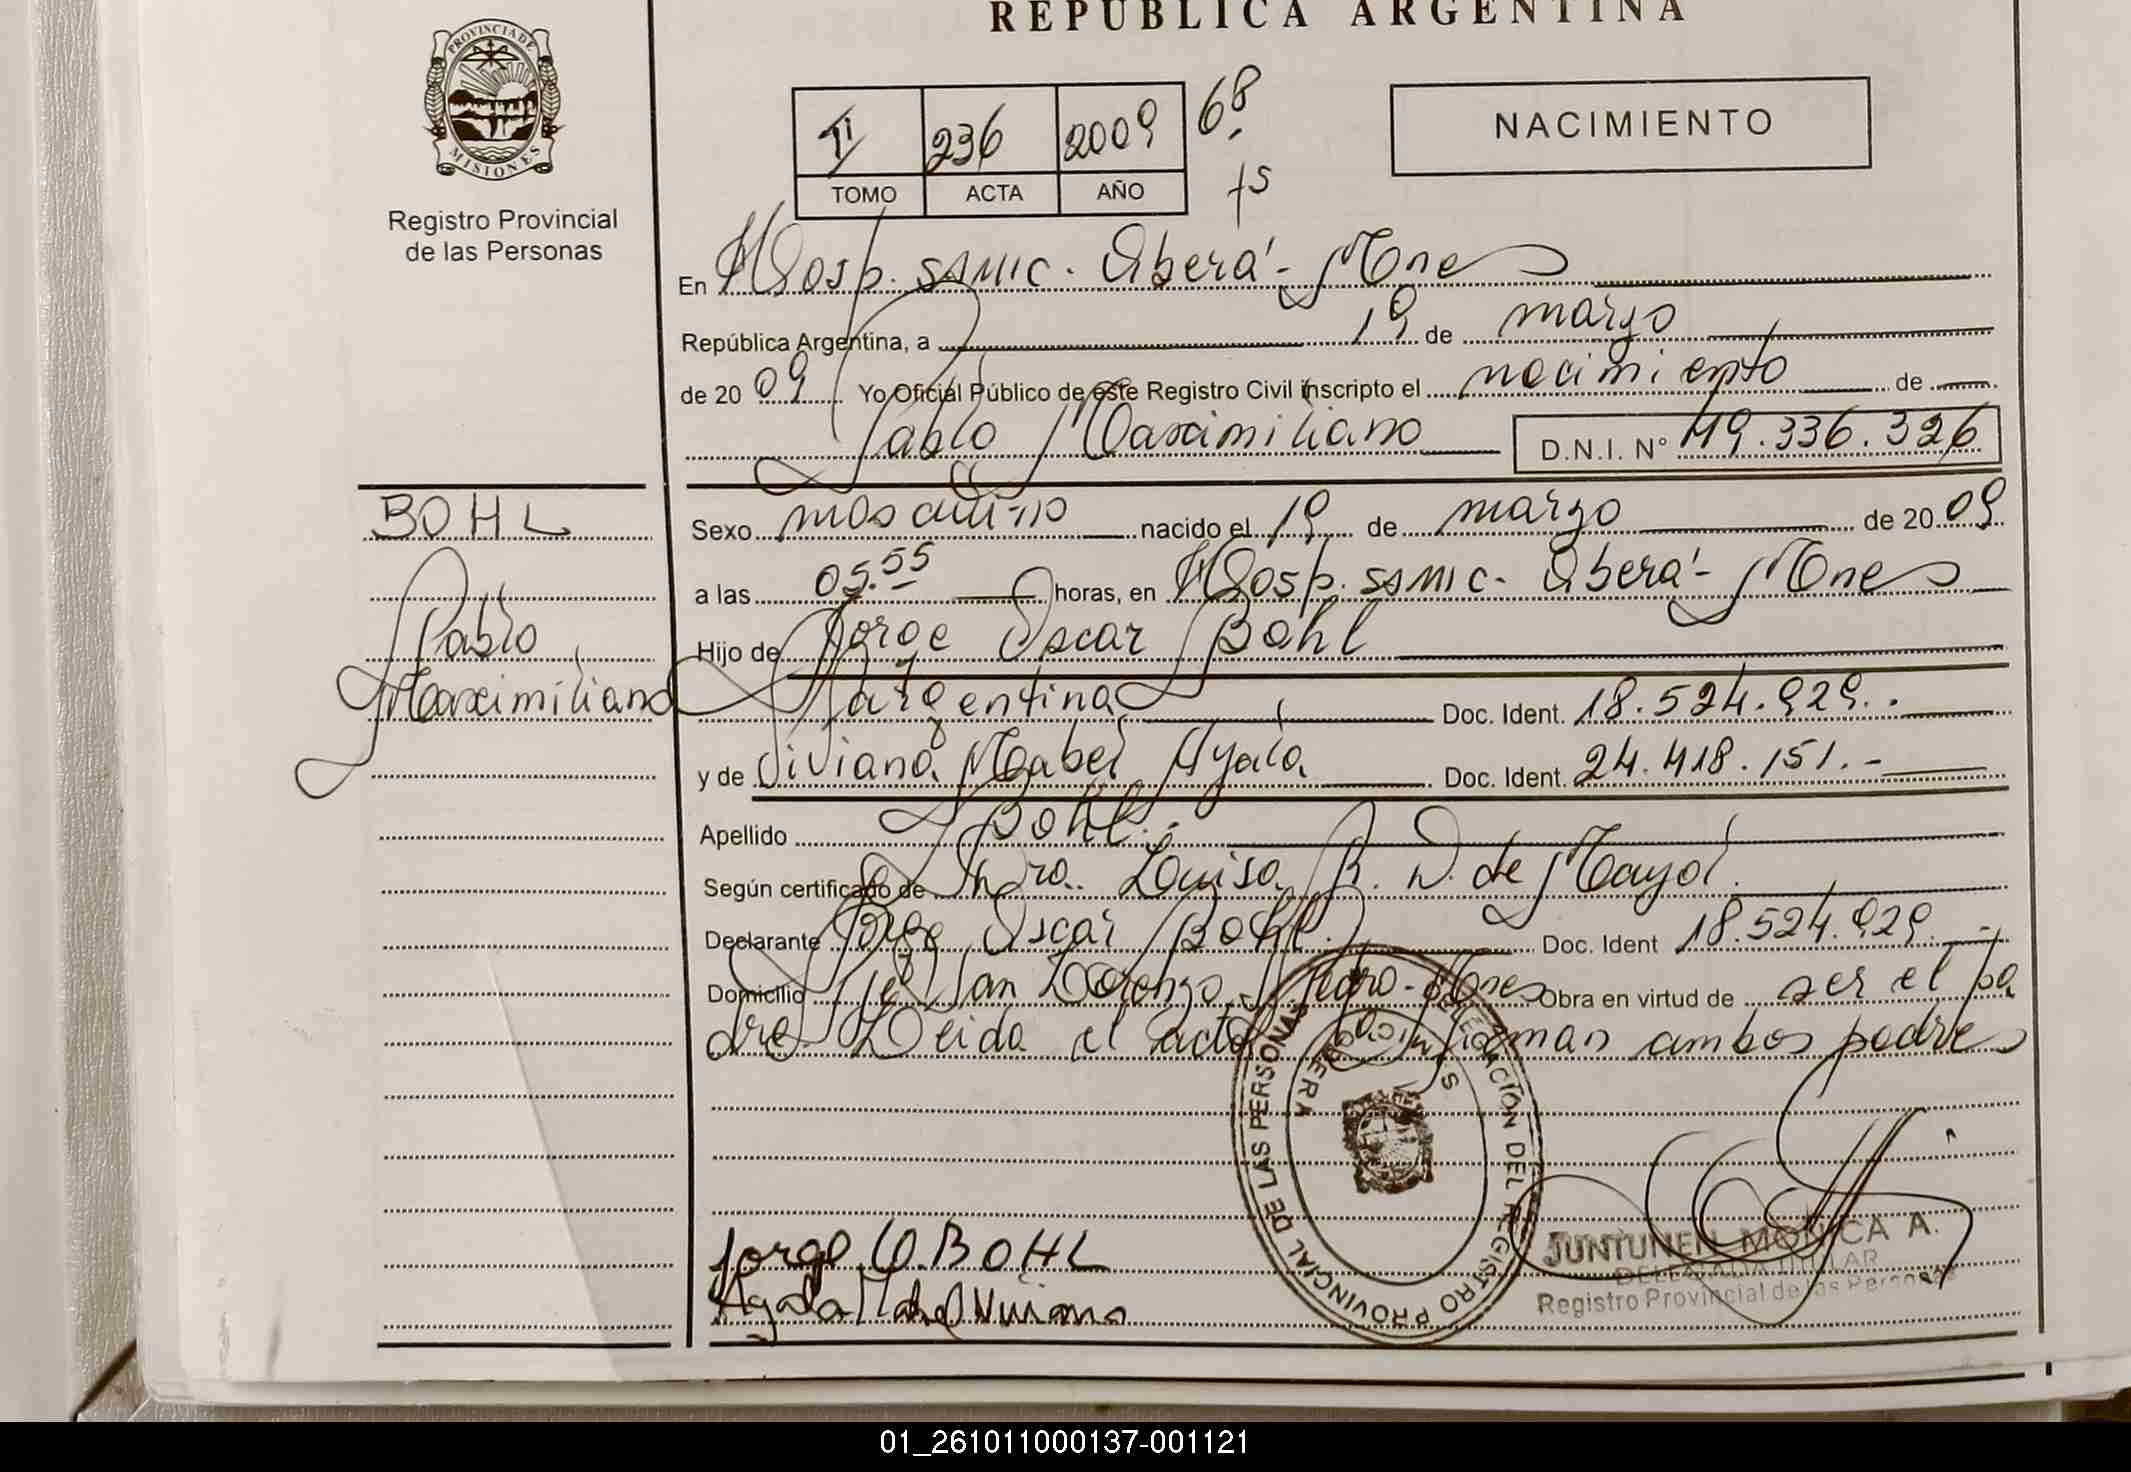 REPÚBLICA ARGENTINA
PROVINCIA DE
MISIONES
Registro Provincial
de las Personas
II 236 2009 68
TOMO ACTA AÑO
fs
NACIMIENTO
En Hosp. SAMIC. Oberá - Mnes
República Argentina, a 19 de marzo
de 2009 Yo Oficial Público de este Registro Civil inscripto el nacimiento de
Pablo Maximiliano D.N.I. Nº 49.336.326
BOHL
Pablo
Maximiliano
Sexo masculino nacido el 19 de marzo de 2009
a las 05.55 horas, en Hosp. SAMIC. Oberá - Mnes
Hijo de Jorge Oscar Bohl
Argentina Doc. Ident. 18.524.929.-
y de Viviana Mabel Ayala Doc. Ident. 24.418.151.-
Apellido Bohl.-
Según certificado de Dra. Luisa R. D. de Mayol.
Declarante Jorge Oscar Bohl. Doc. Ident 18.524.929.-
Domicilio San Lorenzo, Mnes Obra en virtud de ser el pa
dre Leida el acta firman ambos padres
DELEGACIÓN DEL REGISTRO PROVINCIAL DE LAS PERSONAS
OBERA MISIONES
Jorge O. BOHL
Ayala Mabel Viviana
JUNTUNEN MONICA A.
DELEGADA TITULAR
Registro Provincial de las Personas
01_261011000137-001121